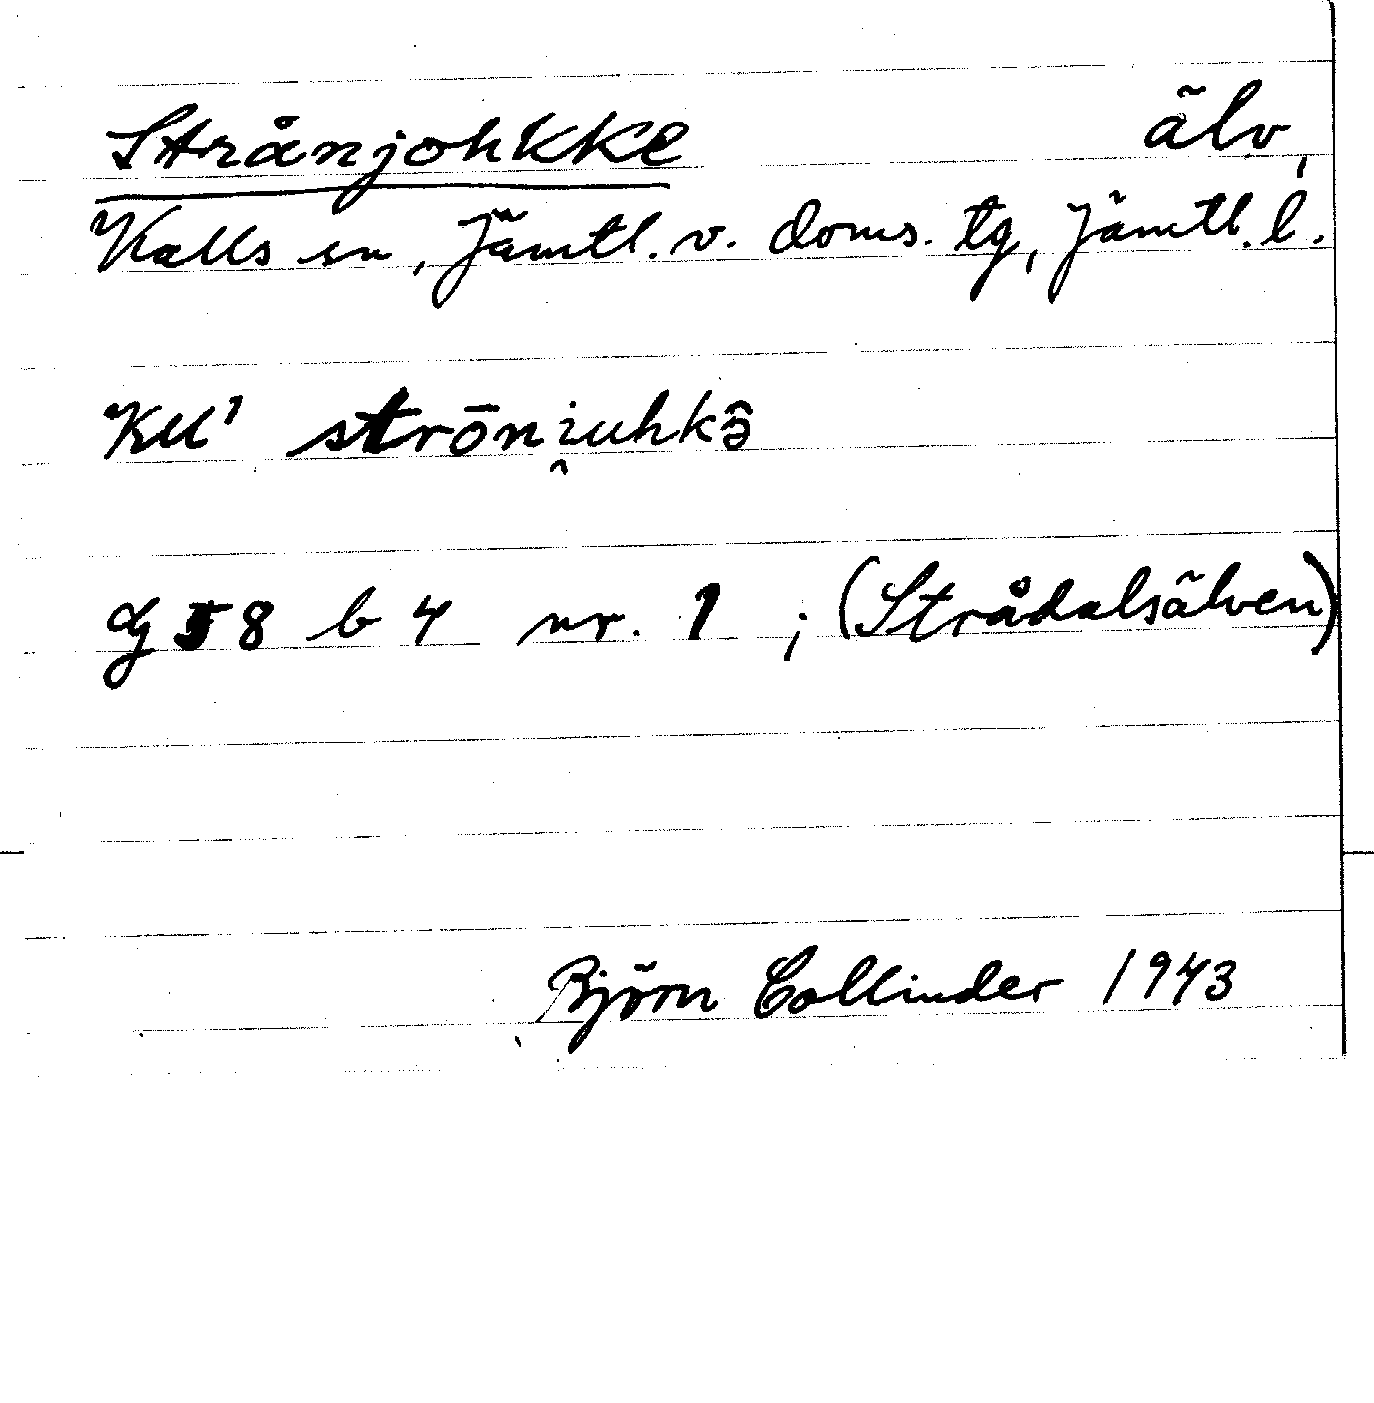 Strånjohkke älv,
Kalls sn, Jämtl. v. doms. tg, Jämtl. l.
KM' strōni̯uhkə̑
G 58 b 4 nr. 1 ; (Strådalsälven)
Björn Collinder 1943